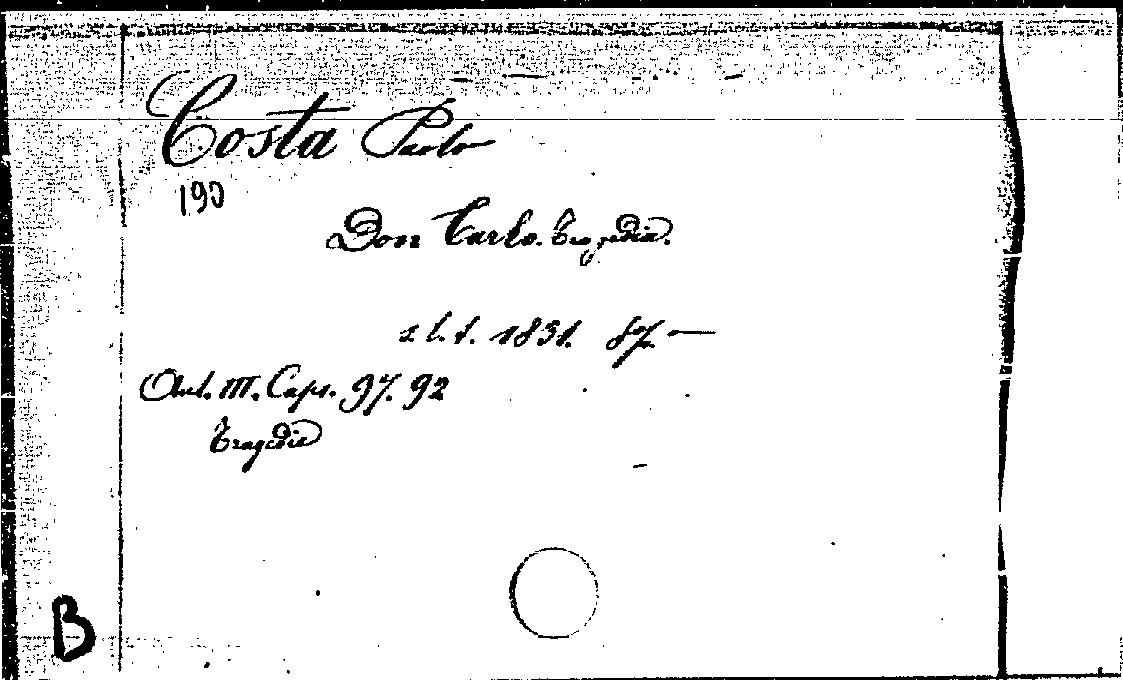 Costa Paolo
190
Don Carlo. Tragedia.
s l. t. 1831. 8°/.
Ant. III. Caps. 97. 92
Tragedie
B